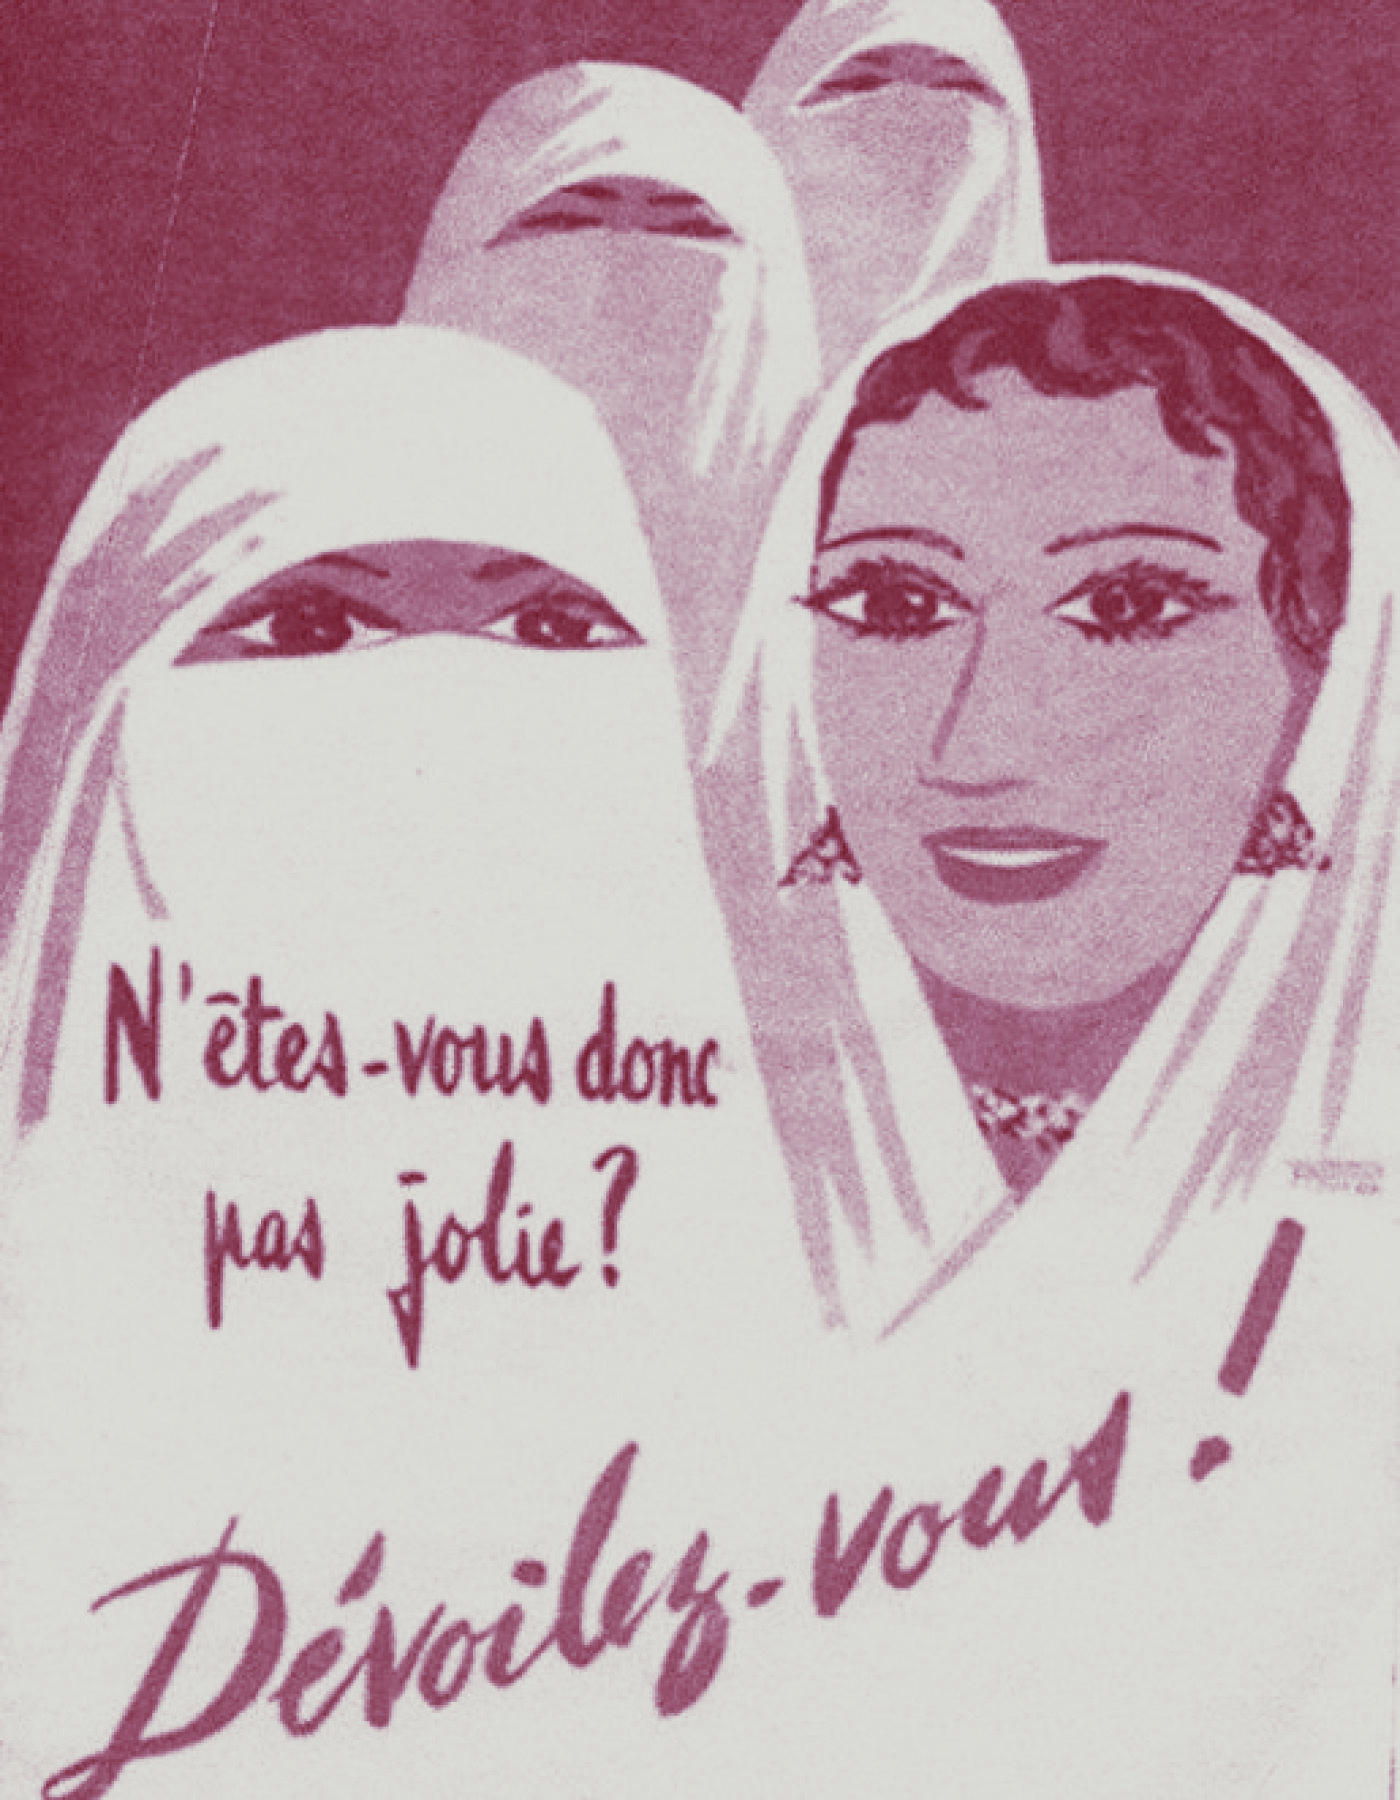 N'êtes-vous donc
pas jolie?
Dévoilez-vous!